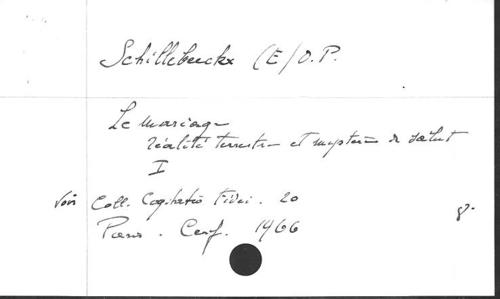 Schillebeeckx (E) O.P.
Le mariage
réalité terrestre et mystère de salut
I
Voir Coll. Cogitatio Fidei. 20
Paris. Cerf. 1966
8°